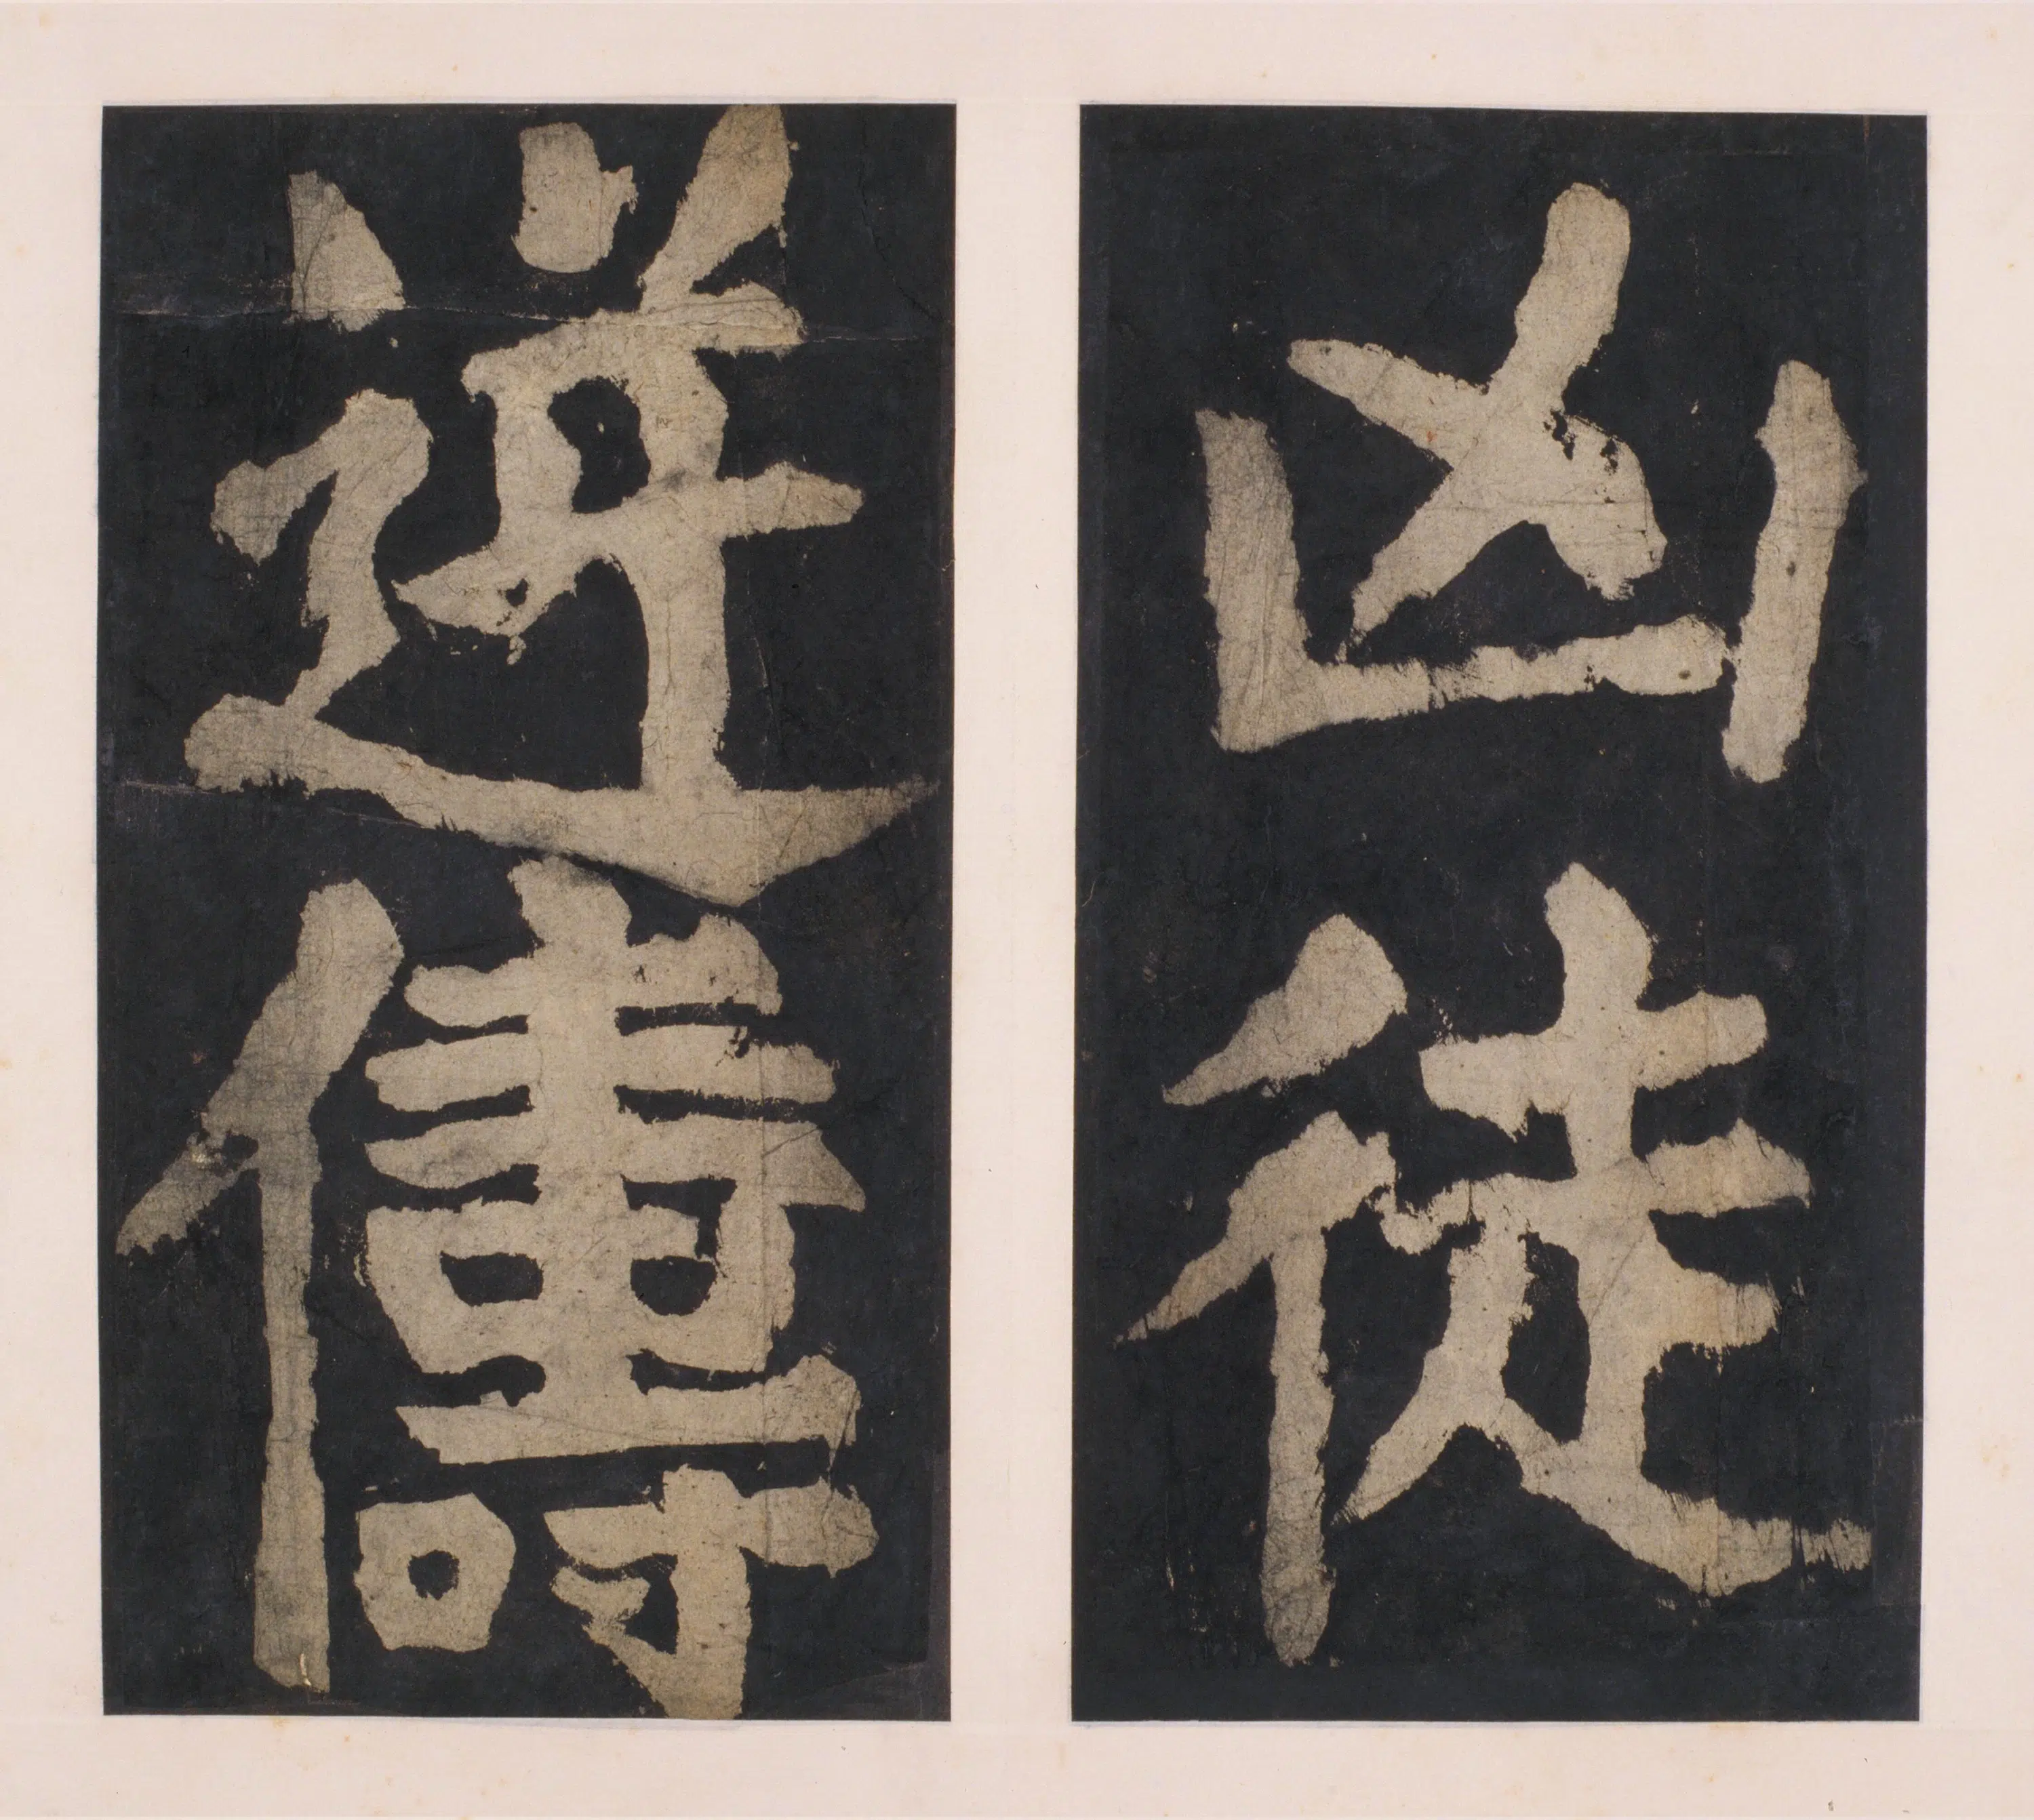 凶徒
逆儔